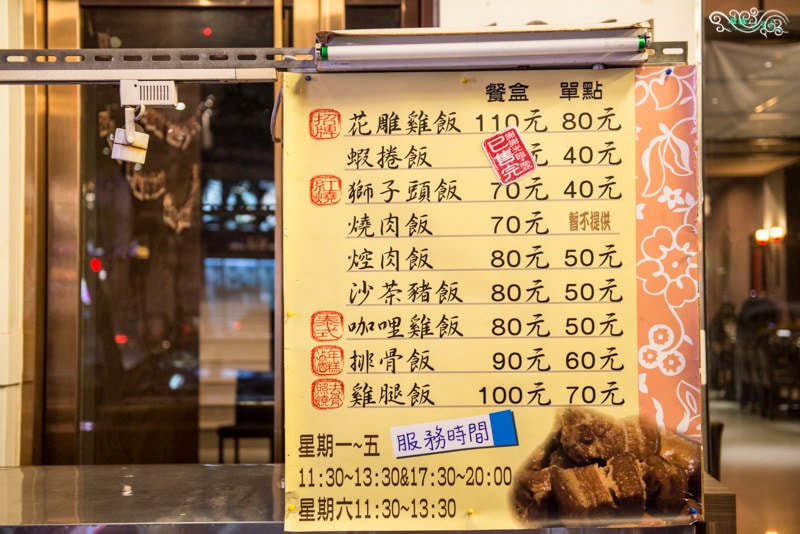 餐盒 單點
招牌 花雕雞飯 110元 80元
蝦捲飯 元 40元
已售完
紅燒 獅子頭飯 70元 40元
燒肉飯 70元 暫不提供
焢肉飯 80元 50元
沙茶豬飯 80元 50元
義式 咖哩雞飯 80元 50元
排骨飯 90元 60元
雞腿飯 100元 70元
星期一~五 服務時間
11:30~13:30&17:30~20:00
星期六11:30~13:30